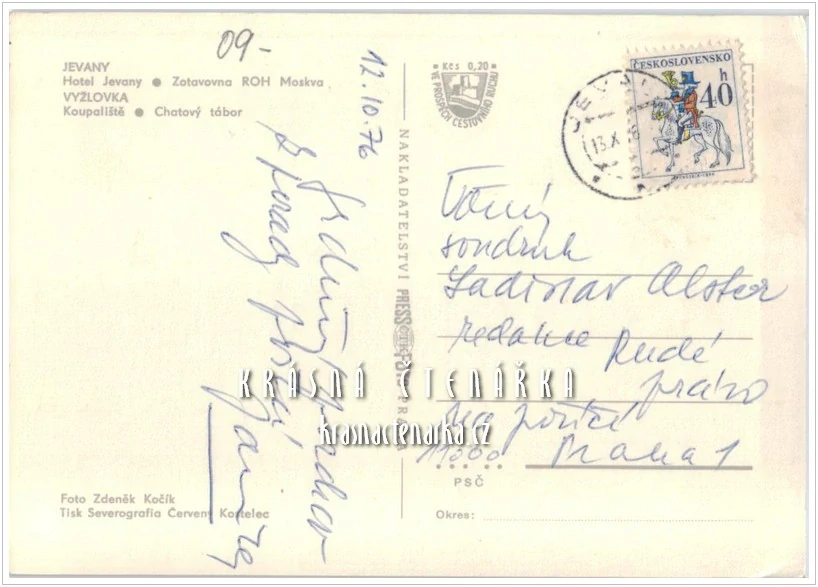 JEVANY
Hotel Jevany ● Zotavovna ROH Moskva
VYŽLOVKA
Koupaliště ● Chatový tábor
09-
12.10.76
Srdečný pozdrav
z porady
Foto Zdeněk Kočík
Tisk Severografia Červený Kostelec
NAKLADATELSTVÍ PRESSFOTO PRAHA
ČTK
Kčs 0,20
VE PROSPĚCH CESTOVNÍHO RUCHU
ČESKOSLOVENSKO
40
h
13.X
Vážený
soudruh
Ladislav Alster
redakce Rudé
právo
Na poříčí
11000 Praha 1
PSČ
Okres:
KRÁSNÁ ČTENÁŘKA
krasnactenarka.cz